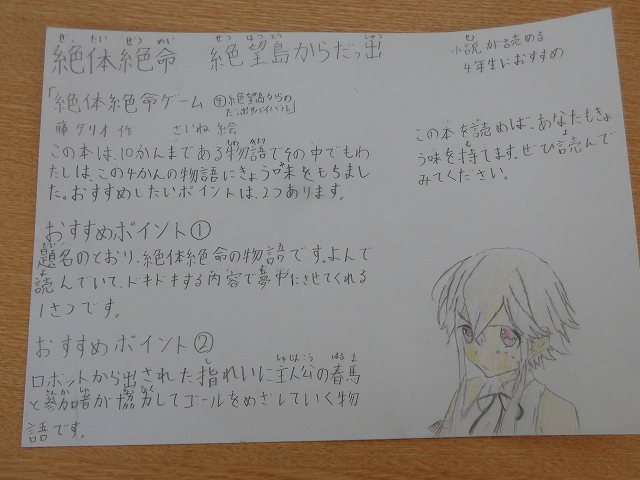 絶体絶命 絶望島からだっ出
小説が読める
4年生におすすめ
「絶体絶命ゲーム ④絶望島からの
だっ出サバイバル」
藤ダリオ 作 さいね 絵
この本は、10かんまである物語でその中でもわ
たしは、この4かんの物語にきょう味をもちまし
た。おすすめしたいポイントは、2つあります。
おすすめポイント①
題名のとおり、絶体絶命の物語です。よんで
読んでいて、ドキドキする内容で夢中にさせてくれる
1さつです。
おすすめポイント②
ロボットから出された指れいに主人公の春馬
と参加者が協力してゴールをめざしていく物
語です。
この本を読めば、あなたもきょ
う味を持てます。ぜひ読んで
みてください。